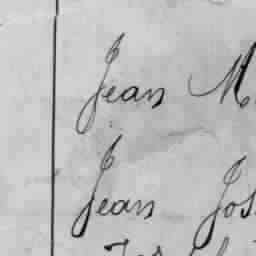 Jean M
Jean Jos